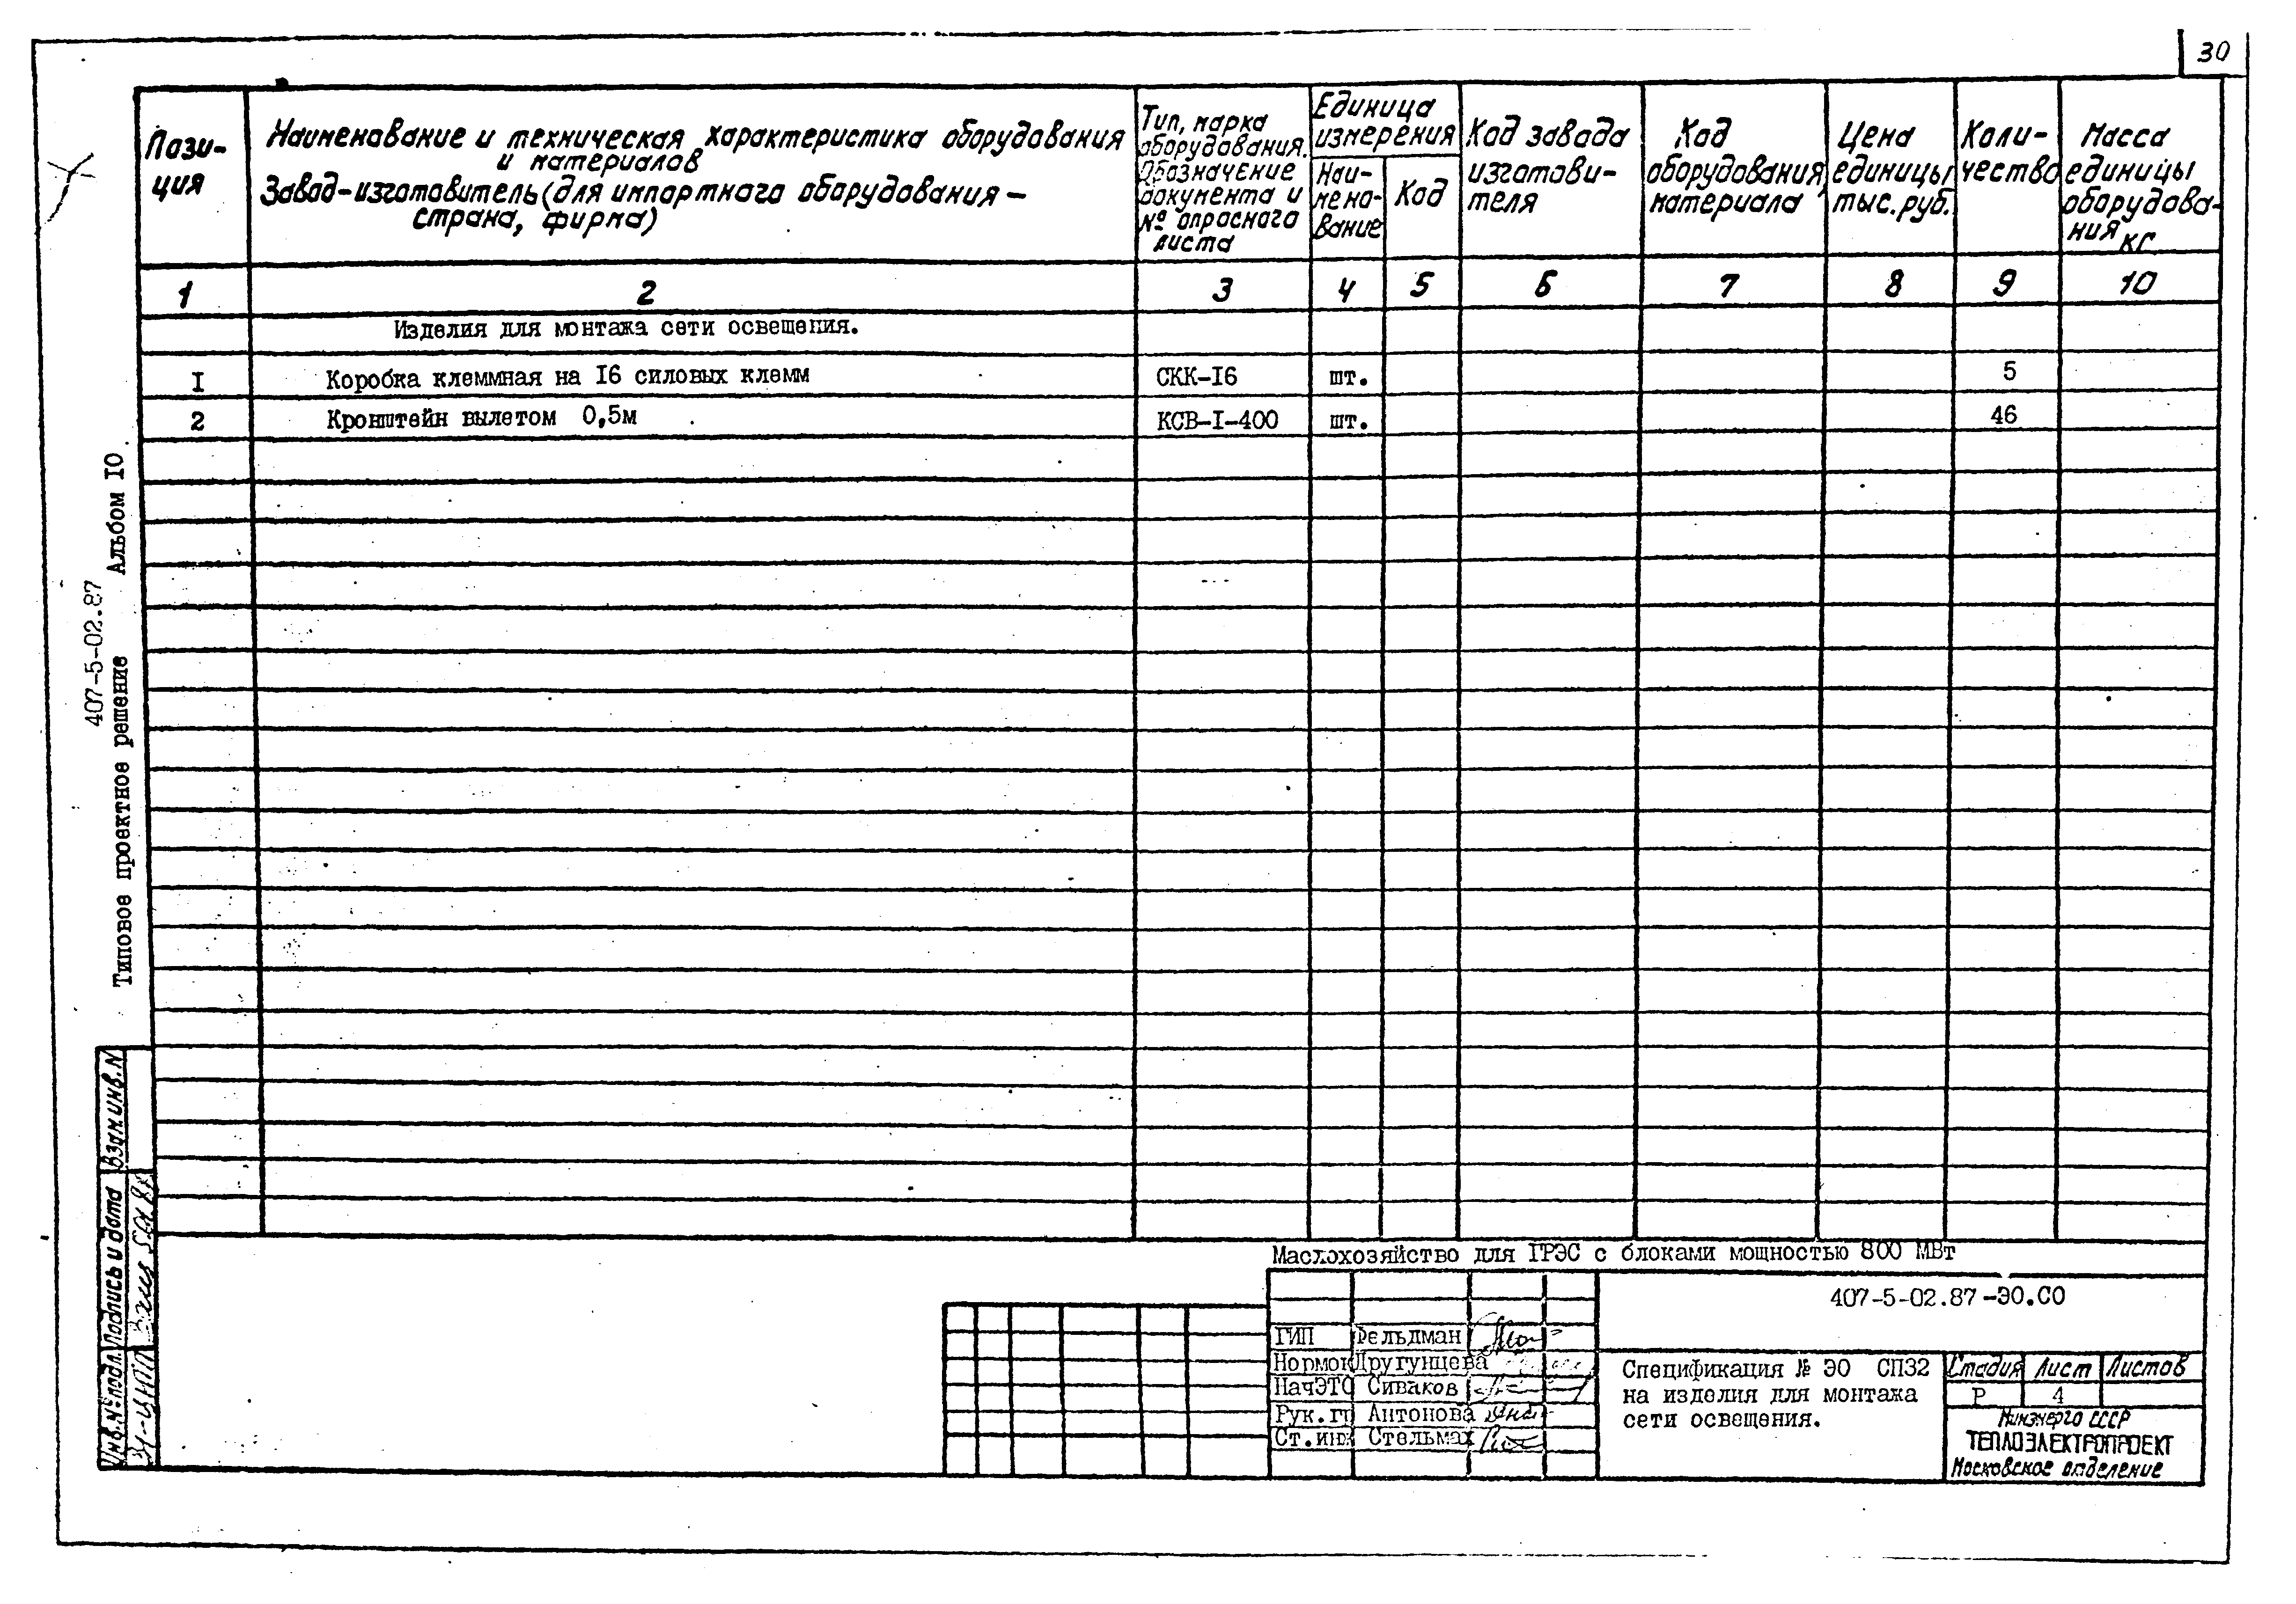 30
Пози-
ция
Наименование и техническая характеристика оборудования
и материалов
Завод-изготовитель (для импортного оборудования –
страна, фирма)
Тип, марка
оборудования.
Обозначение
документа и
№ опросного
листа
Единица
измерения
Наи-
мено-
вание
Код
Код завода
изготови-
теля
Код
оборудования,
материала
Цена
единицы
тыс. руб.
Коли-
чество
Масса
единицы
оборудова-
ния
кг
1 2 3 4 5 6 7 8 9 10
Изделия для монтажа сети освещения.
I Коробка клеммная на I6 силовых клемм СКК-I6 шт. 5
2 Кронштейн вылетом 0,5м КСВ-I-400 шт. 46
407-5-02.87
Типовое проектное решение Альбом IO
Взам инв. N
Подпись и дата
Инв. № подл.
Маслохозяйство для ГРЭС с блоками мощностью 800 МВт
407-5-02.87-ЭО.СО
ГИП Фельдман
Нормок Другунцева
НачЭТО Сиваков
Рук.гр Антонова
Ст.инж Стельмах
Спецификация № ЭО СПЗ2
на изделия для монтажа
сети освещения.
Стадия Лист Листов
Р 4
Минэнерго СССР
ТЕПЛОЭЛЕКТРОПРОЕКТ
Московское отделение